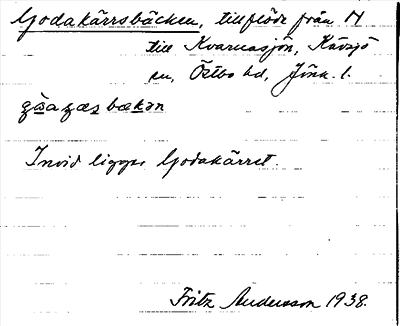 Godakärrsbäcken, tillflöde från N
till Kvarnasjön, Kävsjö
sn, Östbo hd, Jönk. l.
Invid ligger Godakärret.
Fritz Andersson 1938.